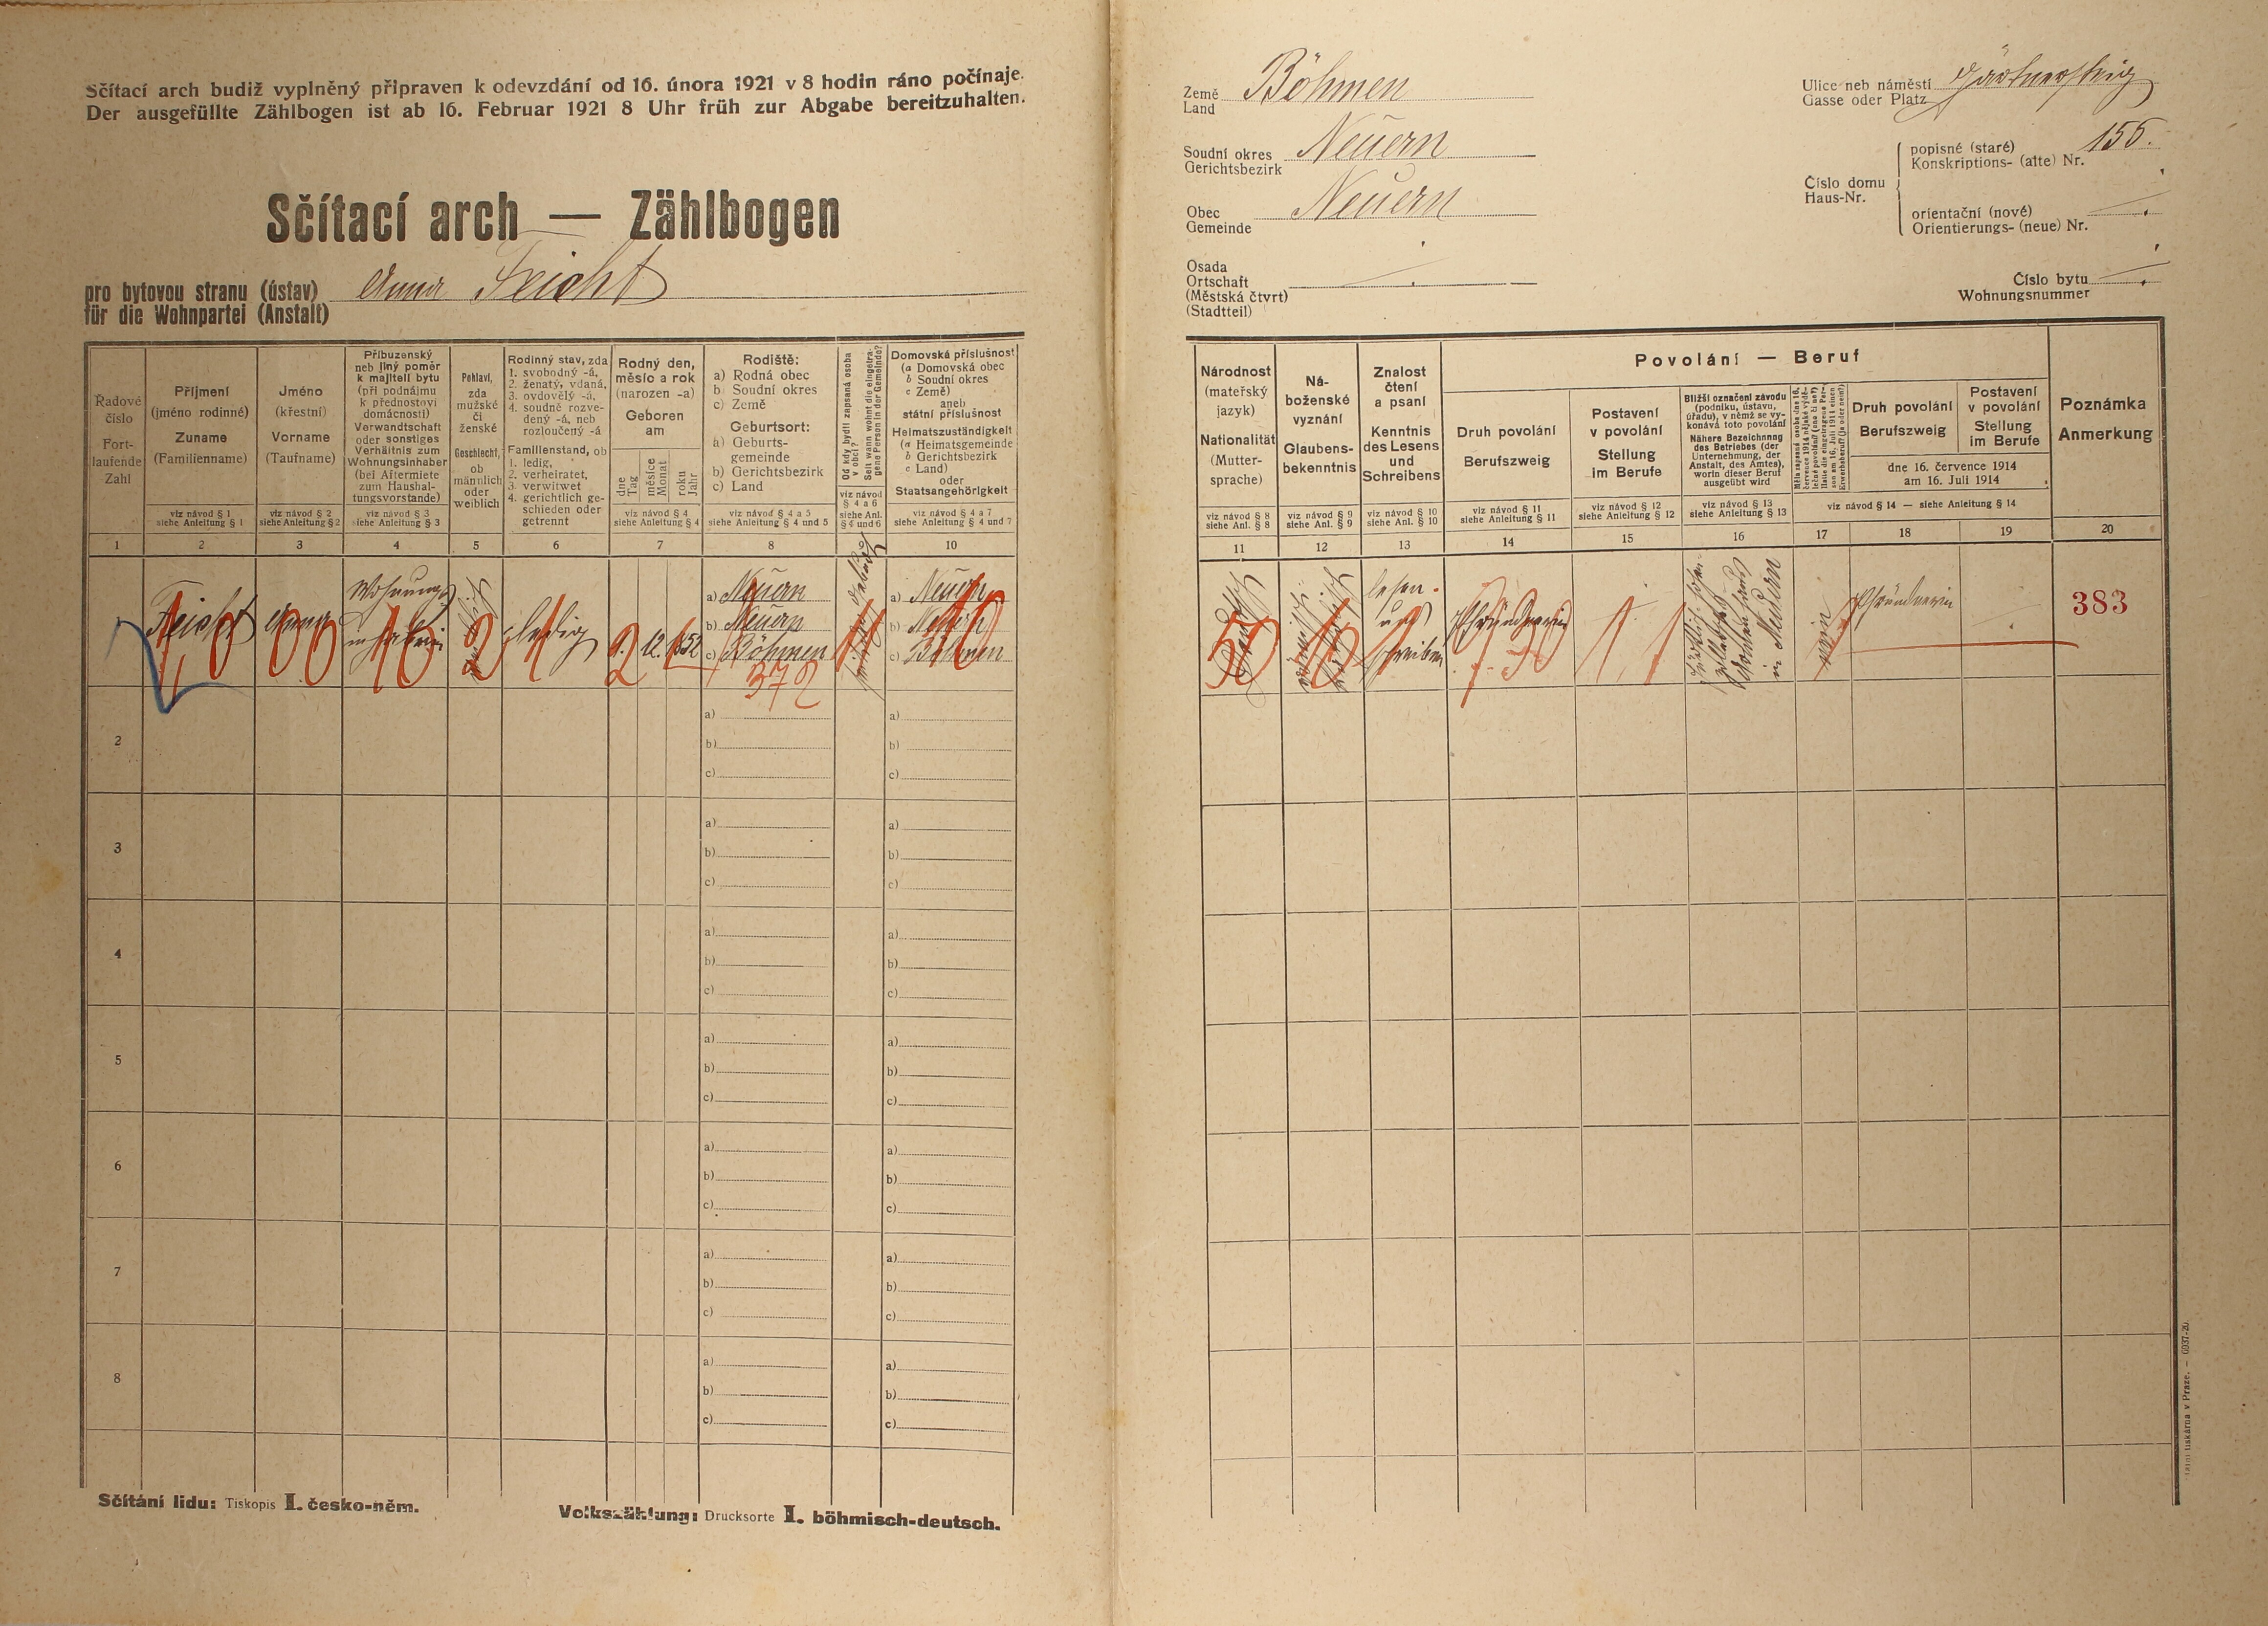 Sčítací arch budiž vyplněný připraven k odevzdání od 16. února 1921 v 8 hodin ráno počínaje.
Der ausgefüllte Zählbogen ist ab 16. Februar 1921 8 Uhr früh zur Abgabe bereitzuhalten.
Sčítací arch — Zählbogen
pro bytovou stranu (ústav)
für die Wohnpartei (Anstalt)
Anna Feicht
Země
Land
Böhmen
Soudní okres
Gerichtsbezirk
Neuern
Obec
Gemeinde
Neuern
Osada
Ortschaft
(Městská čtvrt)
(Stadtteil)
Ulice neb náměstí
Gasse oder Platz
Číslo domu
Haus-Nr.
popisné (staré)
Konskriptions- (alte) Nr.
155.
orientační (nové)
Orientierungs- (neue) Nr.
Číslo bytu
Wohnungsnummer
Řadové
číslo
Fort-
laufende
Zahl
1
Příjmení
(jméno rodinné)
Zuname
(Familienname)
viz návod § 1
siehe Anleitung § 1
2
Jméno
(křestní)
Vorname
(Taufname)
viz návod § 2
siehe Anleitung § 2
3
Příbuzenský
neb jiný poměr
k majiteli bytu
(při podnájmu
k přednostovi
domácnosti)
Verwandtschaft
oder sonstiges
Verhältnis zum
Wohnungsinhaber
(bei Aftermiete
zum Haushal-
tungsvorstande)
viz návod § 3
siehe Anleitung § 3
4
Pohlaví,
zda
mužské
či
ženské
Geschlecht,
ob
männlich
oder
weiblich
5
Rodinný stav, zda
1. svobodný -á,
2. ženatý, vdaná,
3. ovdovělý -á,
4. soudně rozve-
dený -á, neb
rozloučený -á
Familienstand, ob
1. ledig,
2. verheiratet,
3. verwitwet
4. gerichtlich ge-
schieden oder
getrennt
6
Rodný den,
měsíc a rok
(narozen -a)
Geboren
am
dne
Tag
měsíce
Monat
roku
Jahr
viz návod § 4
siehe Anleitung § 4
7
Rodiště:
a) Rodná obec
b) Soudní okres
c) Země
Geburtsort:
a) Geburts-
gemeinde
b) Gerichtsbezirk
c) Land
viz návod § 4 a 5
siehe Anleitung § 4 und 5
8
Od kdy bydlí zapsaná osoba
v obci?
Seit wann wohnt die eingetra-
gene Person in der Gemeinde?
viz návod
§ 4 a 6
siehe Anl.
§ 4 und 6
Domovská příslušnost
(a Domovská obec
b Soudní okres
c Země)
aneb
státní příslušnost
Heimatszuständigkeit
(a Heimatsgemeinde
b Gerichtsbezirk
c Land)
oder
Staatsangehörigkeit
viz návod § 4 a 7
siehe Anleitung § 4 und 7
10
Národnost
(mateřský
jazyk)
Nationalität
(Mutter-
sprache)
viz návod § 8
siehe Anl. § 8
11
Ná-
boženské
vyznání
Glaubens-
bekenntnis
viz návod § 9
siehe Anl. § 9
12
Znalost
čtení
a psaní
Kenntnis
des Lesens
und
Schreibens
viz návod § 10
siehe Anl. § 10
13
Povolání — Beruf
Druh povolání
Berufszweig
viz návod § 11
siehe Anleitung § 11
14
Postavení
v povolání
Stellung
im Berufe
viz návod § 12
siehe Anleitung § 12
15
Bližší označení závodu
(podniku, ústavu,
úřadu), v němž se vy-
konává toto povolání
Nähere Bezeichnung
des Betriebes (der
Unternehmung, der
Anstalt, des Amtes),
worin dieser Beruf
ausgeübt wird
viz návod § 13
siehe Anleitung § 13
16
17
Druh povolání
Berufszweig
Postavení
v povolání
Stellung
im Berufe
dne 16. července 1914
am 16. Juli 1914
viz návod § 14 — siehe Anleitung § 14
18
19
Poznámka
Anmerkung
20
Feicht
Anna
Wohnungs
inhaberin
ledig
1. 12. 1852
a) Neuern
b) Neuern
c) Böhmen
372
a) Neuern
b) Neuern
c) Böhmen
deutsch
römisch
katholisch
lesen
und
schreiben
Pfründnerin
in Neuern
nein
Pfründnerin
383
2
a)
b)
c)
a)
b)
c)
3
a)
b)
c)
a)
b)
c)
4
a)
b)
c)
a)
b)
c)
5
a)
b)
c)
a)
b)
c)
6
a)
b)
c)
a)
b)
c)
7
a)
b)
c)
a)
b)
c)
8
a)
b)
c)
a)
b)
c)
Sčítání lidu: Tiskopis I. česko-něm.
Volkszählung: Drucksorte I. böhmisch-deutsch.